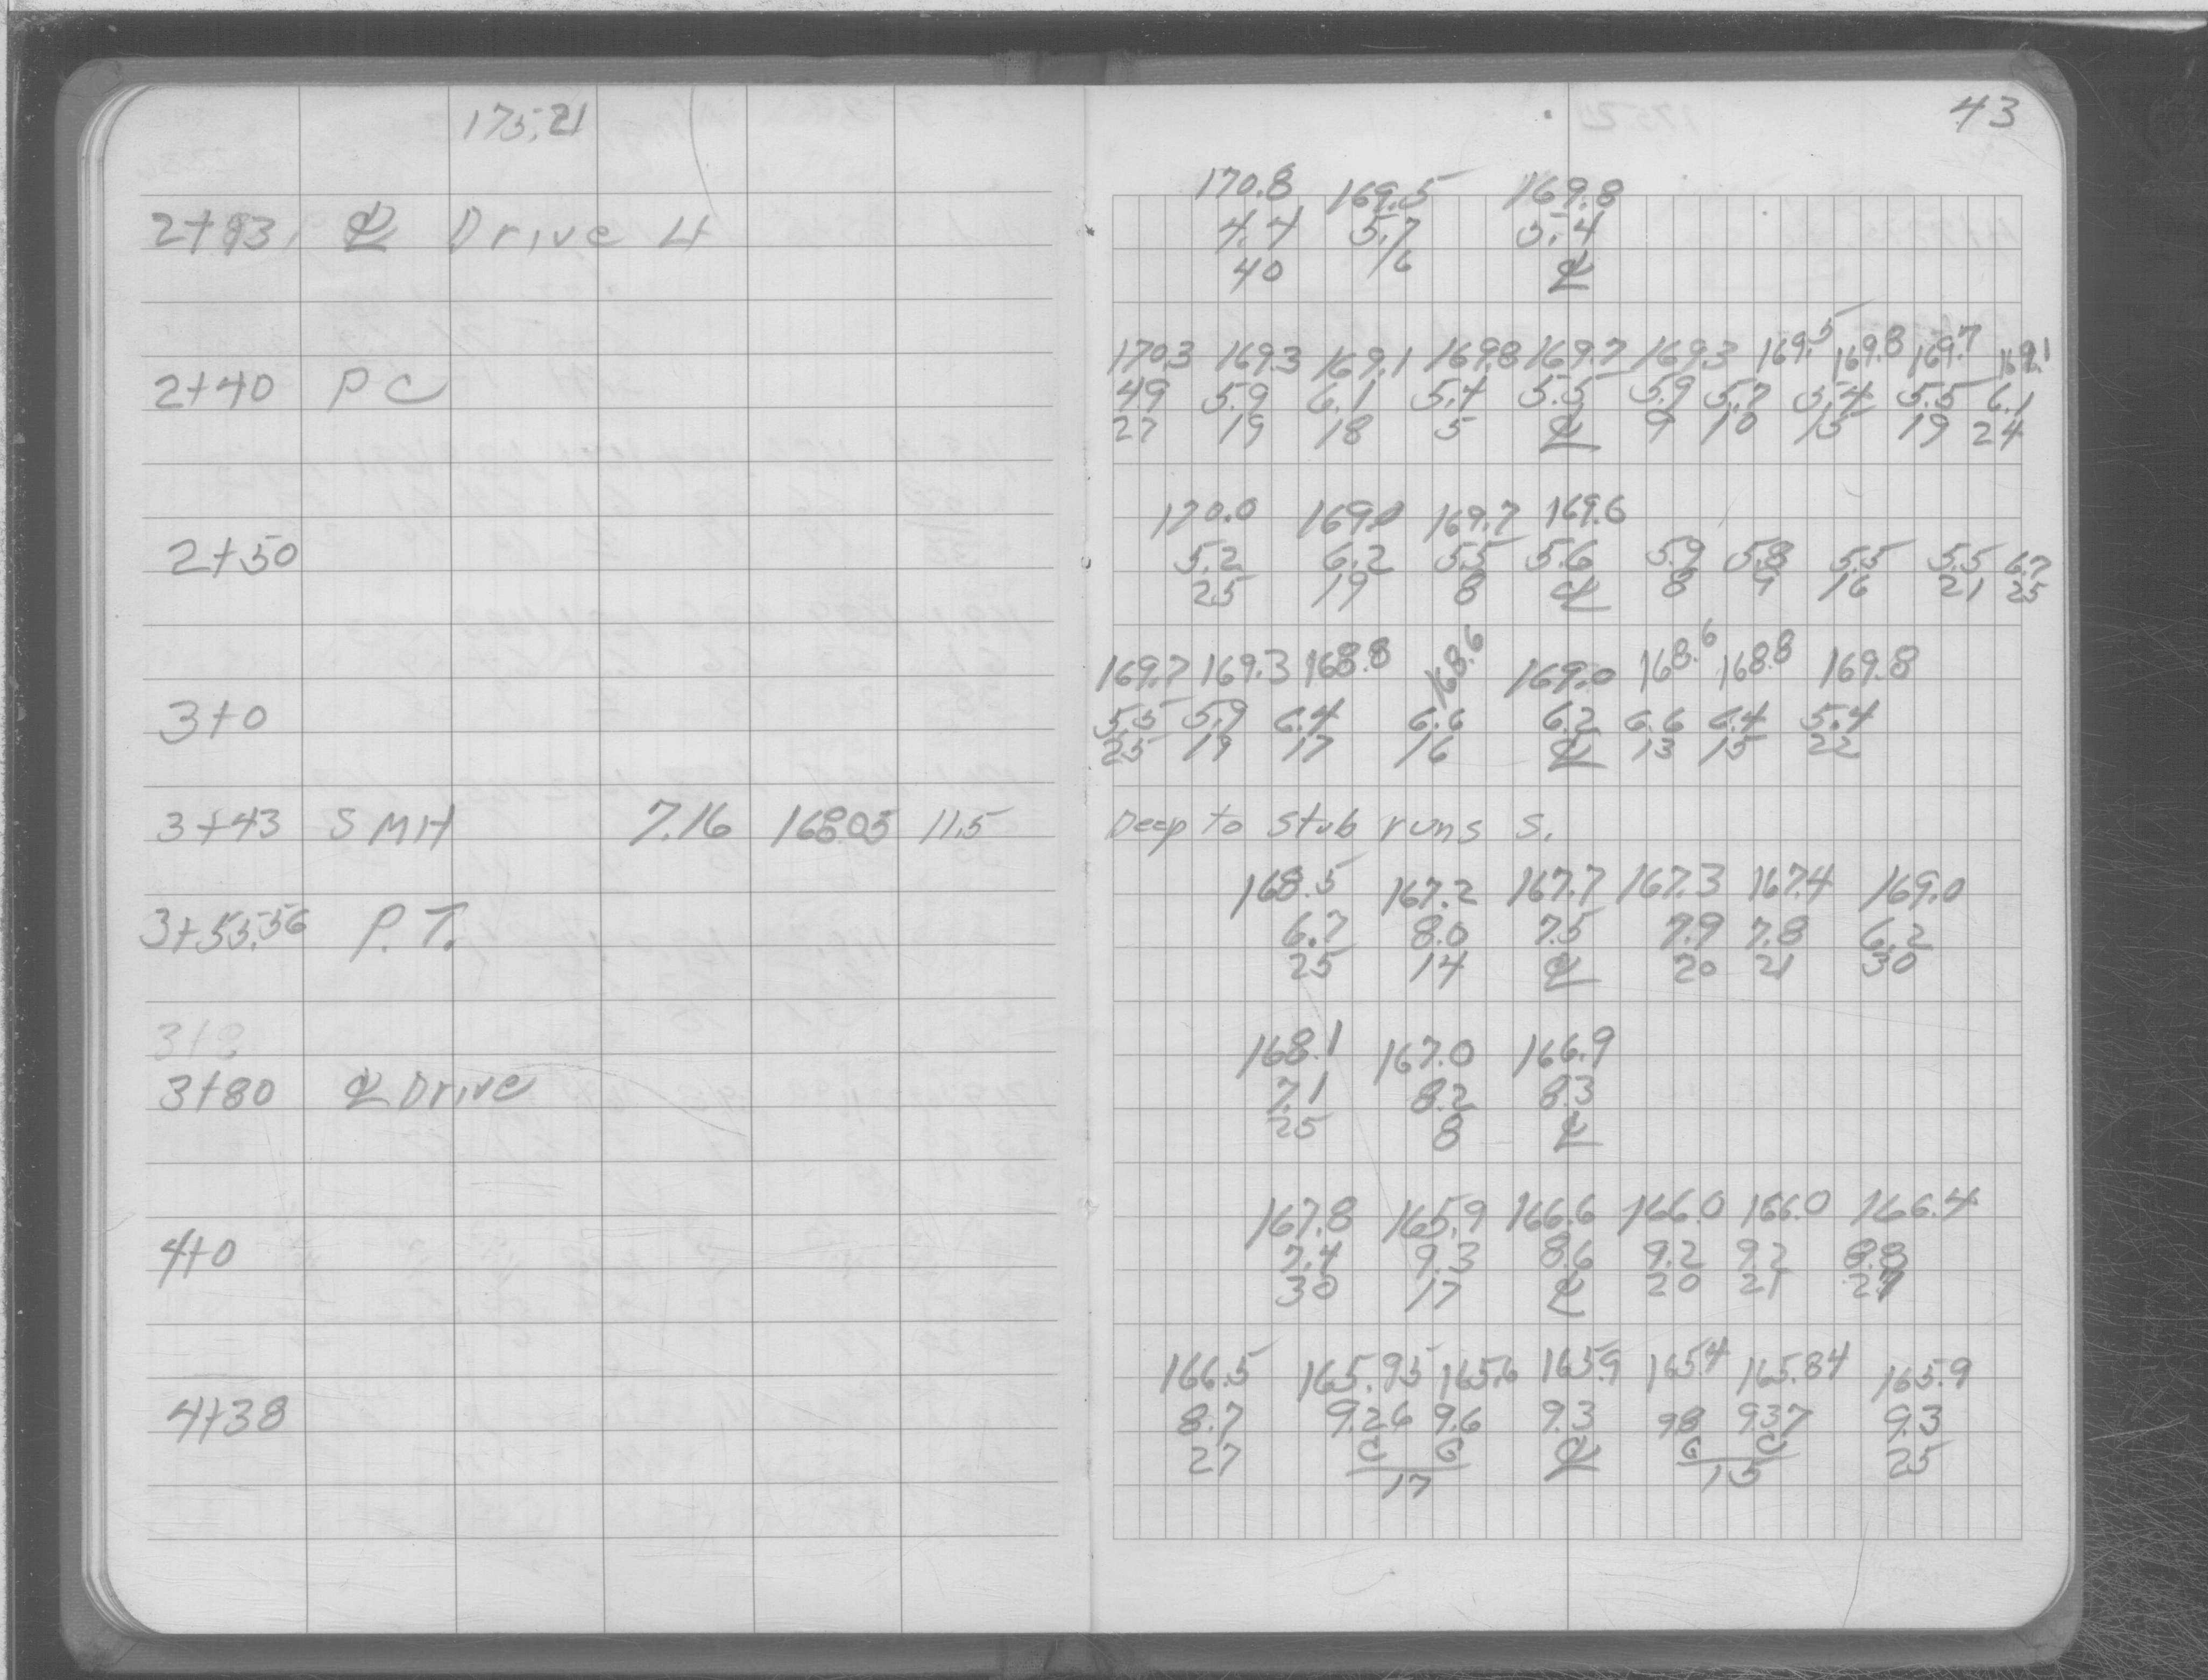 175.21
43
170.8 169.5 169.8
2+93 ℄ Drive 4 4.4 5.7 5.4
40 16 ℄
170.3 169.3 169.1 169.8 169.7 169.3 169.5 169.8 169.7 169.1
2+40 PC 4.9 5.9 6.1 5.4 5.5 5.9 5.7 5.4 5.5 6.1
27 19 18 5 ℄ 9 10 15 19 24
170.0 169.0 169.7 169.6
2+50 5.2 6.2 5.5 5.6 5.9 5.8 5.5 5.5 6.7
25 19 8 ℄ 8 9 16 21 25
169.7 169.3 168.8 168.6 169.0 168.6 168.8 169.8
3+0 5.5 5.9 6.4 6.6 6.2 6.6 6.4 5.4
25 19 17 16 ℄ 13 15 22
3+43 SMH 7.16 168.05 11.5 Deep to stub runs S.
168.5 167.2 167.7 167.3 167.4 169.0
3+53.56 P.T. 6.7 8.0 7.5 7.9 7.8 6.2
25 14 ℄ 20 21 30
168.1 167.0 166.9
3+80 ℄ Drive 7.1 8.2 8.3
25 8 ℄
167.8 165.9 166.6 166.0 166.0 166.4
4+0 7.4 9.3 8.6 9.2 9.2 8.8
30 17 ℄ 20 21 27
166.5 165.95 165.6 165.9 165.4 165.84 165.9
4+38 8.7 9.26 9.6 9.3 9.8 9.37 9.3
27 C G ℄ G C 25
17 15